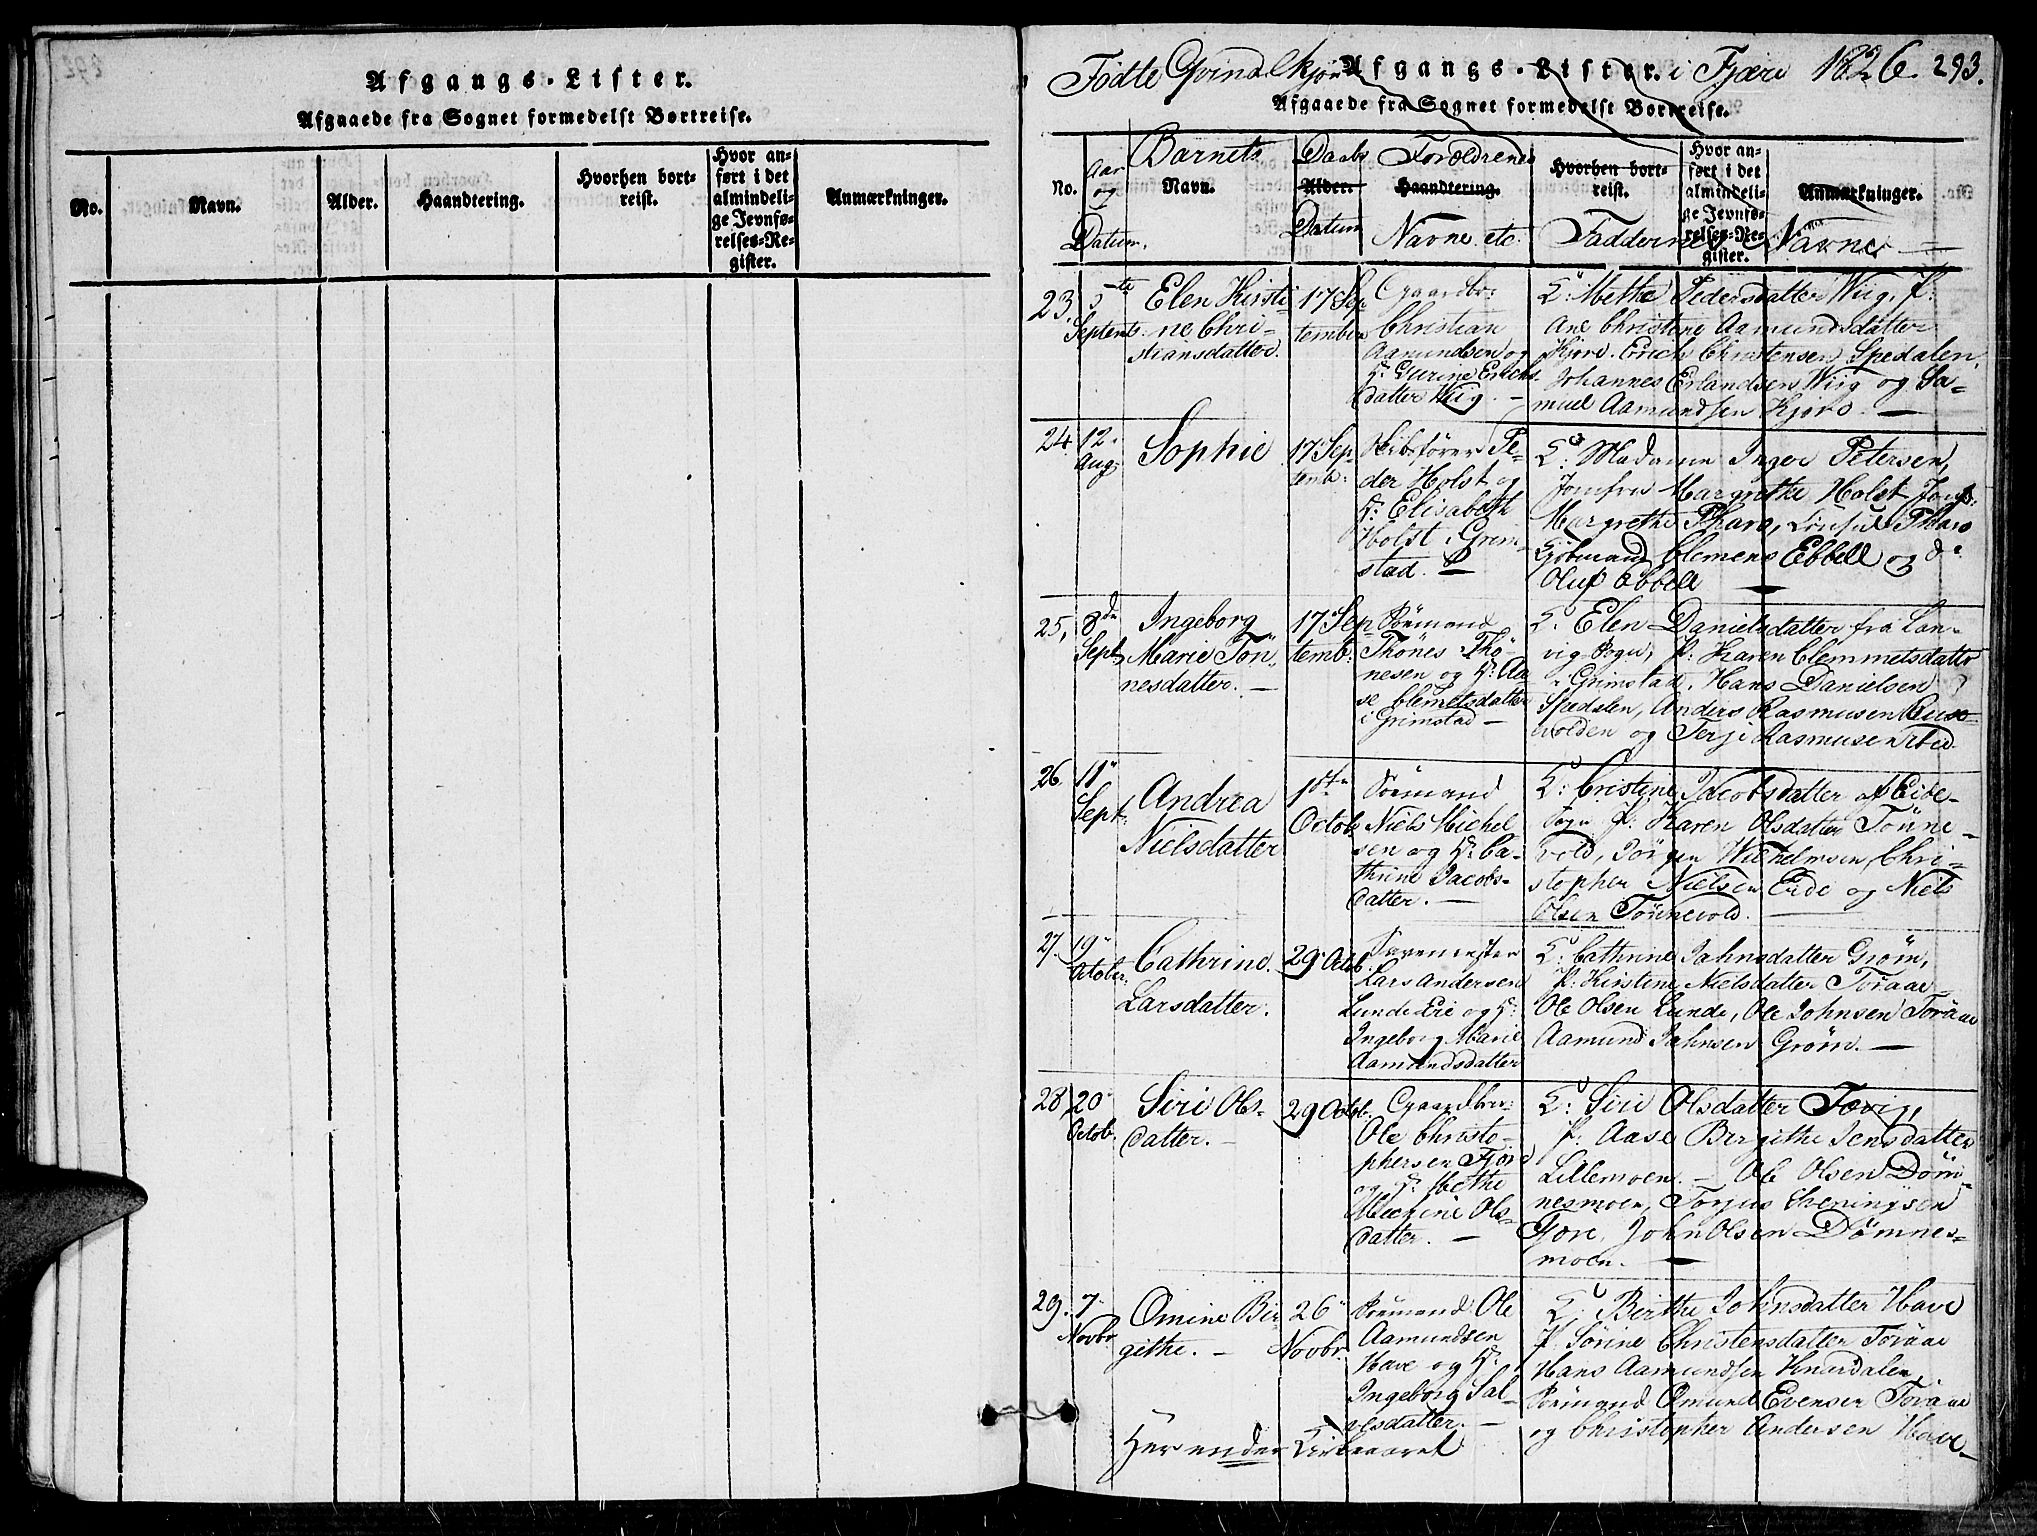 Afgangs-Lister.
Afgaaede fra Sognet formedelst Bortreise.
No.
Navn.
Alder.
Haandtering.
Hvorhen bort-
reist.
Hvor an-
ført i det
almindeli-
ge Jevnfø-
relses-Re-
gister.
Anmærkninger.
Fødte Qvindekjøn Afgangs-Lister. i Fjære 1826. 293.
Afgaaede fra Sognet formedelst Bortreise.
No.
Aar
og
Datum.
Barnets
Navn.
Daabs
Alder.
Datum
Forældrenes
Haandtering.
Navne etc.
Hvorhen bort-
reist.
Hvor an-
ført i det
almindeli-
ge Jevnfø-
relses-Re-
gister.
Anmærkninger.
Faddernes Navne
23.
5te
Septemb:
Elen Kirsti-
ne Chri-
stiansdatter.
17 Sep-
tember
Gaardbr:
Christian
Aamundsen og
H: Gurine Erichs-
datter Wiig. -
Q: Methe Pedersdatter Wiig. P:
Ane Christine Aamundsdatter
Kjore. Erich Christensen Spedalen,
Johannes Erlandsen Wiig og Sa-
muel Aamundsen Kjore. -
24.
12.
Aug:
Sophie
17 Sep-
temb:
Skibsfører Pe-
der Holst og
H: Elisabeth
Holst i Grim-
stad. -
Q: Madamm Inger Petersen,
Jomfru Margrethe Holst, Jomf:
Margrethe Pharo, Pharo
Kjøbmand Clemens Ebbell og do
Oluf Ebbell -
25,
8de
Sept:
Ingeborg
Marie Tön-
nesdatter. -
17 Sep-
temb:
Sømand
Thönes Thö-
nesen og H: Aa-
se Clemetsdatter
i Grimstad -
Q: Elen Danielsdatter fra Lan-
vig Sogn, P: Karen Clemmetsdatter
i Grimstad. Hans Danielsen
Spedalen, Anders Rasmusen
volden og Terje Rasmusen ibid.
26.
11
Sept:
Andrea
Nielsdatter
1ste
Octob.
Sømand
Niels Michel
sen og H: Ca-
thrine Jacobs-
datter. -
Q: Cristine Jacobsdatter af Eide-
Sogn P: Karen Olsdatter Tönne-
vold, Jörgen Wilhelmsen, Chri-
stopher Nielsen Eide og Niels
Olsen Tönnevold.
27.
19
October.
Cathrine.
Larsdatter.
29 Octob.
Lars Andersen
Lunde Eie og H:
Ingeborg Marie
Aamundsdatter
Q: Cathrine Jahnsdatter Grøm,
P: Kirstine Nielsdatter Toraae
Ole Olsen Lunde, Ole Johnsen Toraae
Aamund Jahnsen Grøm. -
28
20
Octob.
Siri Ols-
datter. -
29 Octob.
Gaardbr:
Ole Christo-
phersen Fjore
og H: Methe
Michine Ols-
datter. -
Q: Siri Olsdatter Tovig,
P: Aase Birgithe Jensdatter
Lillemoen. - Ole Olsen Döm-
nesmoen, Torjus Sveningsen
Fjore, John Olsen Dömnes-
moen. -
29.
7
Novbr
Omine Bir-
githe. -
26
Novbr.
Sømand Ole
Aamundsen
Have og H:
Ingeborg Sal-
vesdatter. -
Q: Birthe Johnsdatter Have
P: Sörine Christensdatter Toraae
Hans Aamundsen Knardalen,
Sømand Omund Evensen Toraae
og Christopher Andersen Have-
Her ender Kirkeaaret